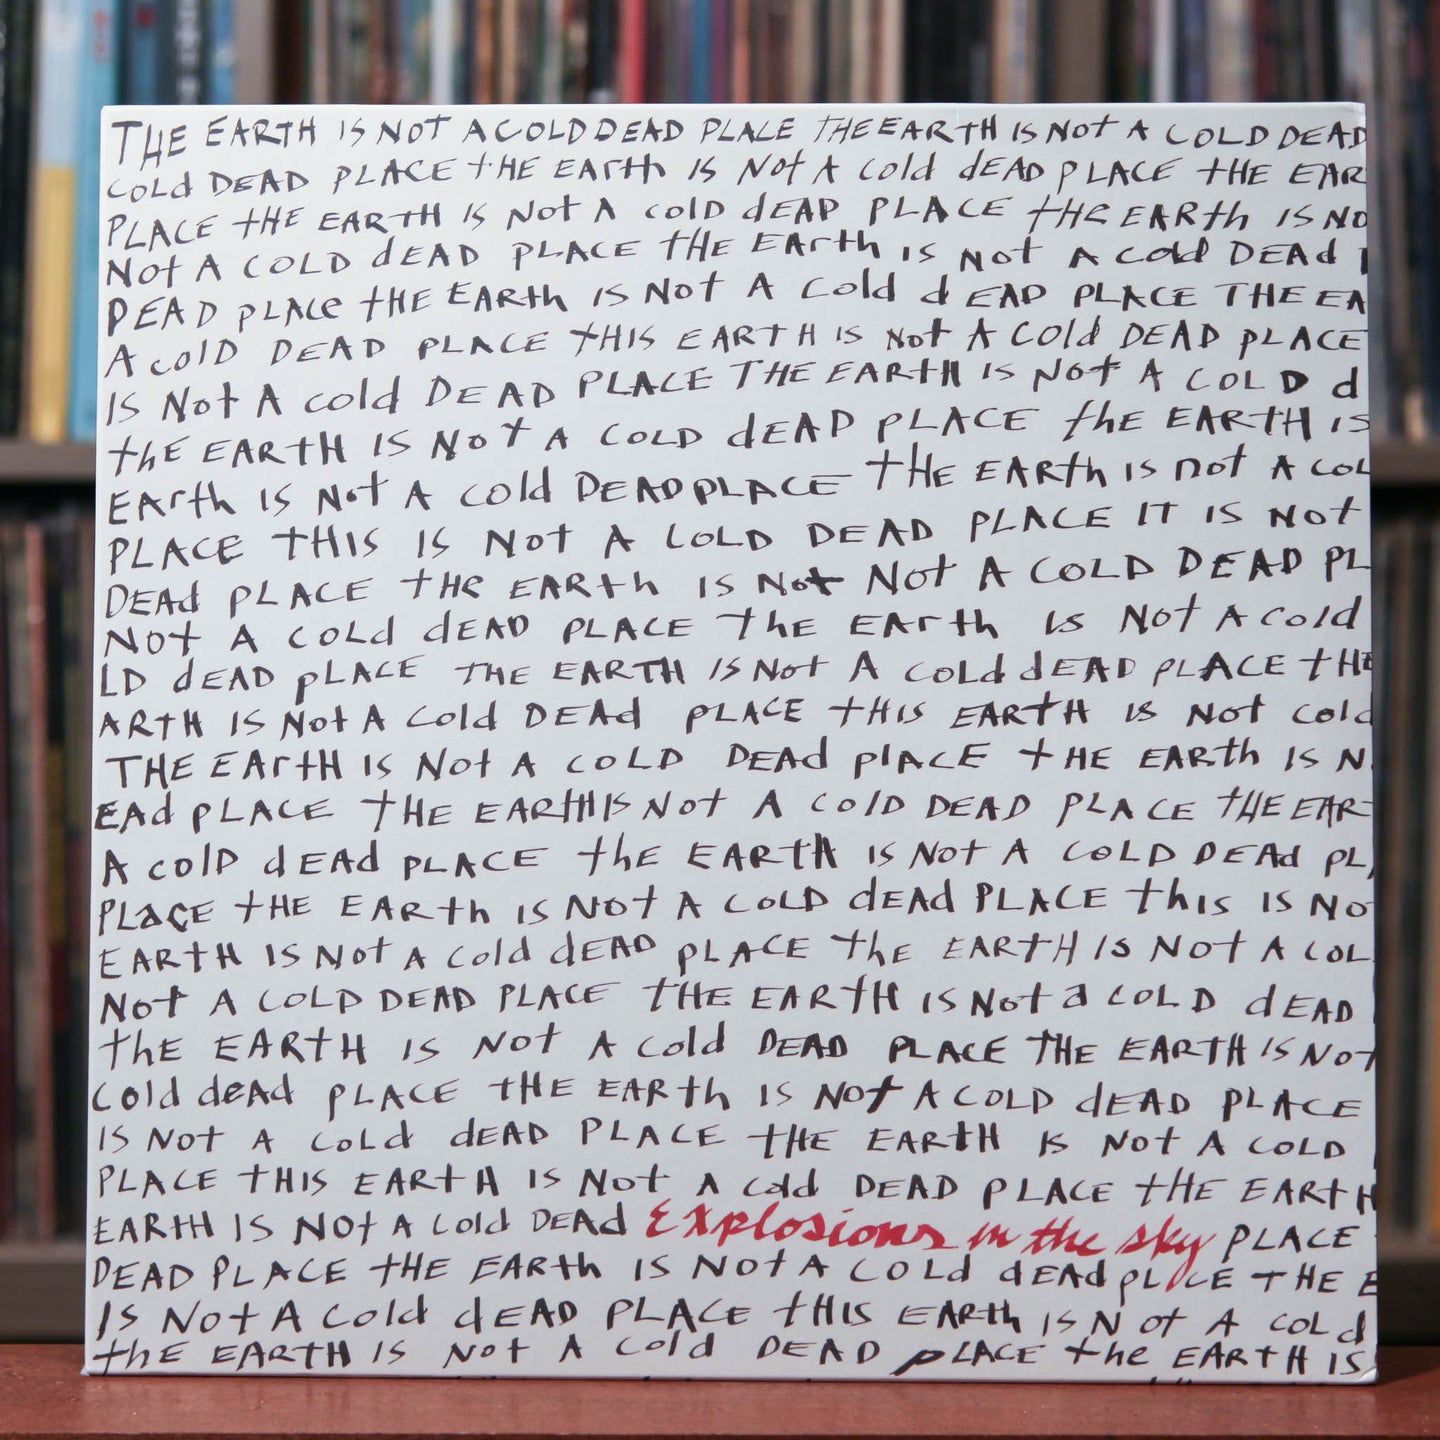 THE EARTH IS NOT A COLD DEAD PLACE THE EARTH IS NOT A COLD DEAD
COLd DEAD PLACE tHE EARth IS NOt A Cold dEAD PLACE tHE EAR
PLACE tHE EARTH IS Not A cold dEAD PLACE tHE EARth IS NO
Not A COLD dEAD PLACE tHE EArth IS Not A Cold DEAd
DEAD PLAce tHE EARth IS Not A Cold dEAD PLACE THE EA
A colD DEAD PLACE tHIS EARTH IS Not A COld DEAD pLACE
IS Not A cold DEAD PLACE THE EARtH IS Not A COLD d
thE EARtH IS Not A COLD dEAD PLACE thE EARTH IS
EArth IS Not A cold DEAD PLACE tHE EARth IS not A COL
PLACE THIS IS Not A COLD DEAD PLACE IT IS Not
DEAd PLACE tHe EARth IS Not Not A COLD DEAD PL
Not A COLd dEAD PLACE The EArth IS Not A Cold
LD dEAD pLACE THE EARTH IS Not A Cold dEAD PLACE tHE
ARTH IS Not A Cold DEAd PLACE tHIS EARtH IS Not Cold
THE EArtH IS Not A COLD DEAd plACE tHE EARth IS N
EAd PLACE tHE EARtH IS Not A ColD DEAD PLACE tHE EAR
A colD dEAd PLACE thE EARtH IS Not A COLD DEAd PL
PLaCE tHE EARth IS Not A COLD dEAd PLACE thIs IS NO
EARtH IS Not A Cold dEAD pLACE thE EARTH IS Not A COL
Not A COLD DEAD PLACE tHE EARtH IS Not a COLD dEAD
thE EARtH IS Not A Cold DEAD PLACE THE EARTH IS Not
Cold deAd PLACE tHE EARth IS Not A COLD dEAD PLACE
IS Not A Cold dEAD PLACE tHE EARtH IS Not A COLD
PLACE tHIS EARtH IS Not A Cold DEAD PLACE tHE EARtH
EARtH IS Not A Cold DEAD Explosions in the sky PLACE
DEAD PLACE tHE EARth IS Not A COLd dEAd pLACE THE E
IS Not A Cold dEAD PLACE tHIS EARth IS Not A COLd
thE EARTH IS Not A Cold DEAD pLACE the EARtH IS